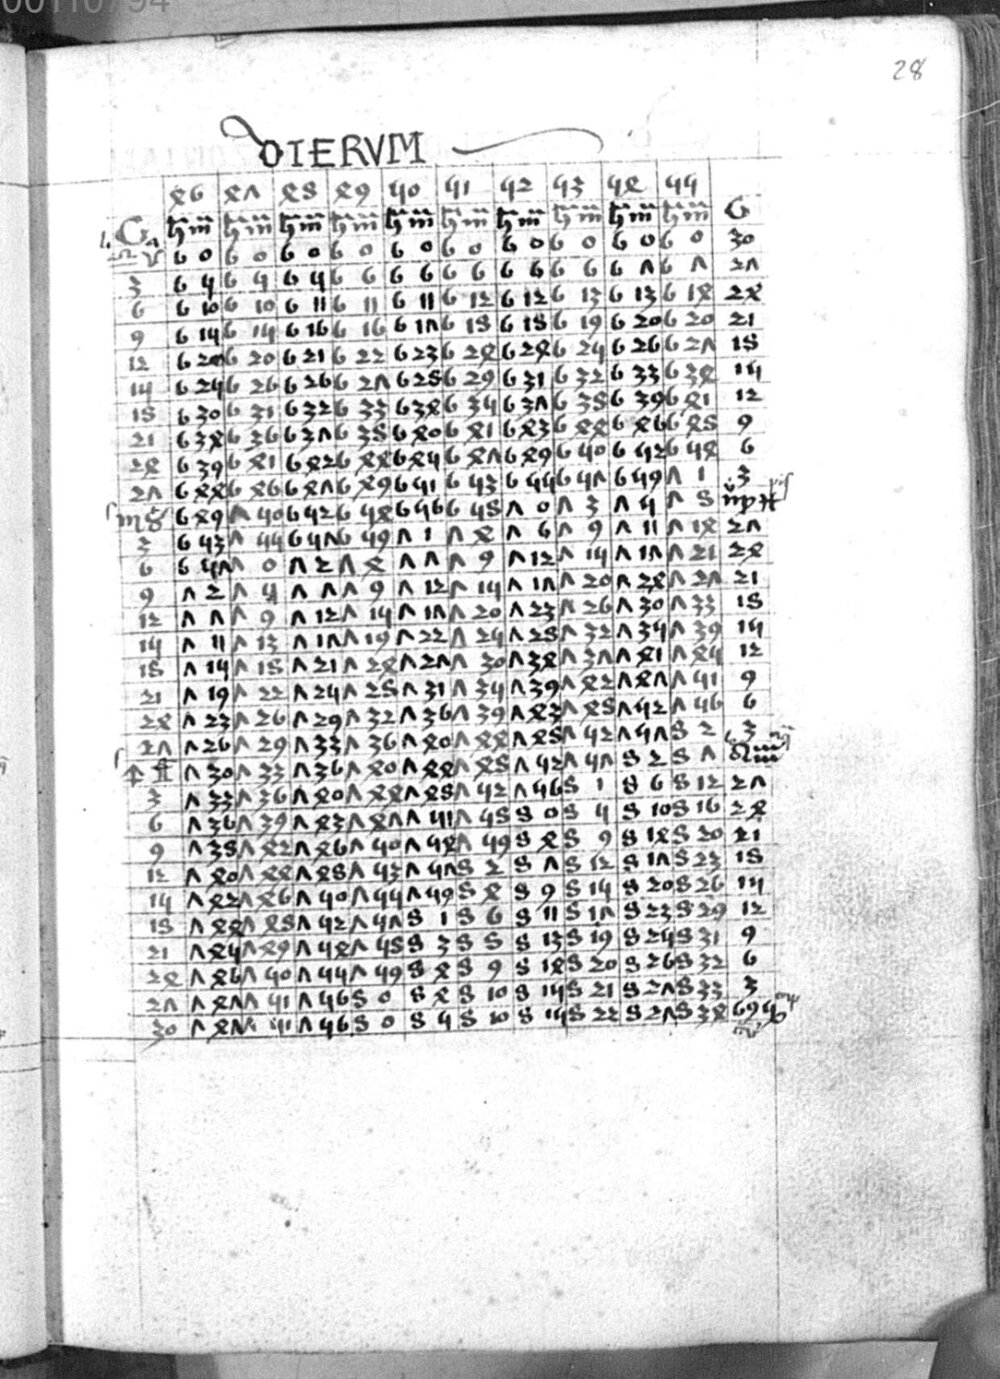 28
DIERVM
46 47 48 49 50 51 52 53 54 55
G h m h m h m h m h m h m h m h m h m h m G
♎ ♈ 6 0 6 0 6 0 6 0 6 0 6 0 6 0 6 0 6 0 6 0 30
3 6 5 6 5 6 5 6 6 6 6 6 6 6 6 6 6 6 7 6 7 27
6 6 10 6 10 6 11 6 11 6 11 6 12 6 12 6 13 6 13 6 14 24
9 6 15 6 15 6 16 6 16 6 17 6 18 6 18 6 19 6 20 6 20 21
12 6 20 6 20 6 21 6 22 6 23 6 24 6 24 6 25 6 26 6 27 18
15 6 25 6 26 6 26 6 27 6 28 6 29 6 31 6 32 6 33 6 34 15
18 6 30 6 31 6 32 6 33 6 34 6 35 6 37 6 38 6 39 6 41 12
21 6 34 6 36 6 37 6 38 6 40 6 41 6 43 6 44 6 46 6 48 9
24 6 39 6 41 6 42 6 44 6 45 6 47 6 49 6 50 6 52 6 54 6
27 6 44 6 46 6 47 6 49 6 51 6 53 6 55 6 57 6 59 7 1 3
♏ ♉ 6 49 7 50 6 52 6 54 6 56 6 58 7 0 7 3 7 5 7 8 ♍ ♓
3 6 53 7 55 6 57 6 59 7 1 7 4 7 6 7 9 7 11 7 14 27
6 6 57 7 0 7 2 7 4 7 7 7 9 7 12 7 15 7 17 7 21 24
9 7 2 7 5 7 7 7 9 7 12 7 15 7 17 7 20 7 24 7 27 21
12 7 7 7 9 7 12 7 15 7 17 7 20 7 23 7 26 7 30 7 33 18
15 7 11 7 13 7 17 7 19 7 22 7 25 7 28 7 32 7 35 7 39 15
18 7 15 7 18 7 21 7 24 7 27 7 30 7 34 7 37 7 41 7 45 12
21 7 19 7 22 7 25 7 28 7 31 7 35 7 39 7 42 7 47 7 51 9
24 7 23 7 26 7 29 7 32 7 36 7 39 7 43 7 48 7 52 7 56 6
27 7 26 7 29 7 33 7 36 7 40 7 44 7 48 7 52 7 57 8 2 3
♐ ♊ 7 30 7 33 7 36 7 40 7 44 7 48 7 52 7 57 8 2 8 7 ♌ ♒
3 7 33 7 36 7 40 7 44 7 48 7 52 7 56 8 1 8 6 8 12 27
6 7 36 7 39 7 43 7 47 7 51 7 58 8 0 8 5 8 10 8 16 24
9 7 38 7 42 7 46 7 50 7 54 7 59 8 4 8 9 8 14 8 20 21
12 7 40 7 44 7 48 7 53 7 57 8 2 8 7 8 12 8 17 8 23 18
15 7 42 7 46 7 50 7 55 7 59 8 4 8 9 8 15 8 20 8 26 15
18 7 44 7 48 7 52 7 57 8 1 8 6 8 11 8 17 8 23 8 29 12
21 7 45 7 49 7 54 7 58 8 3 8 8 8 13 8 19 8 25 8 31 9
24 7 46 7 50 7 55 7 59 8 4 8 9 8 14 8 20 8 26 8 32 6
27 7 47 7 51 7 56 8 0 8 4 8 10 8 15 8 21 8 27 8 33 3
30 7 47 7 51 7 56 8 0 8 5 8 10 8 15 8 22 8 27 8 34 ♋ ♑